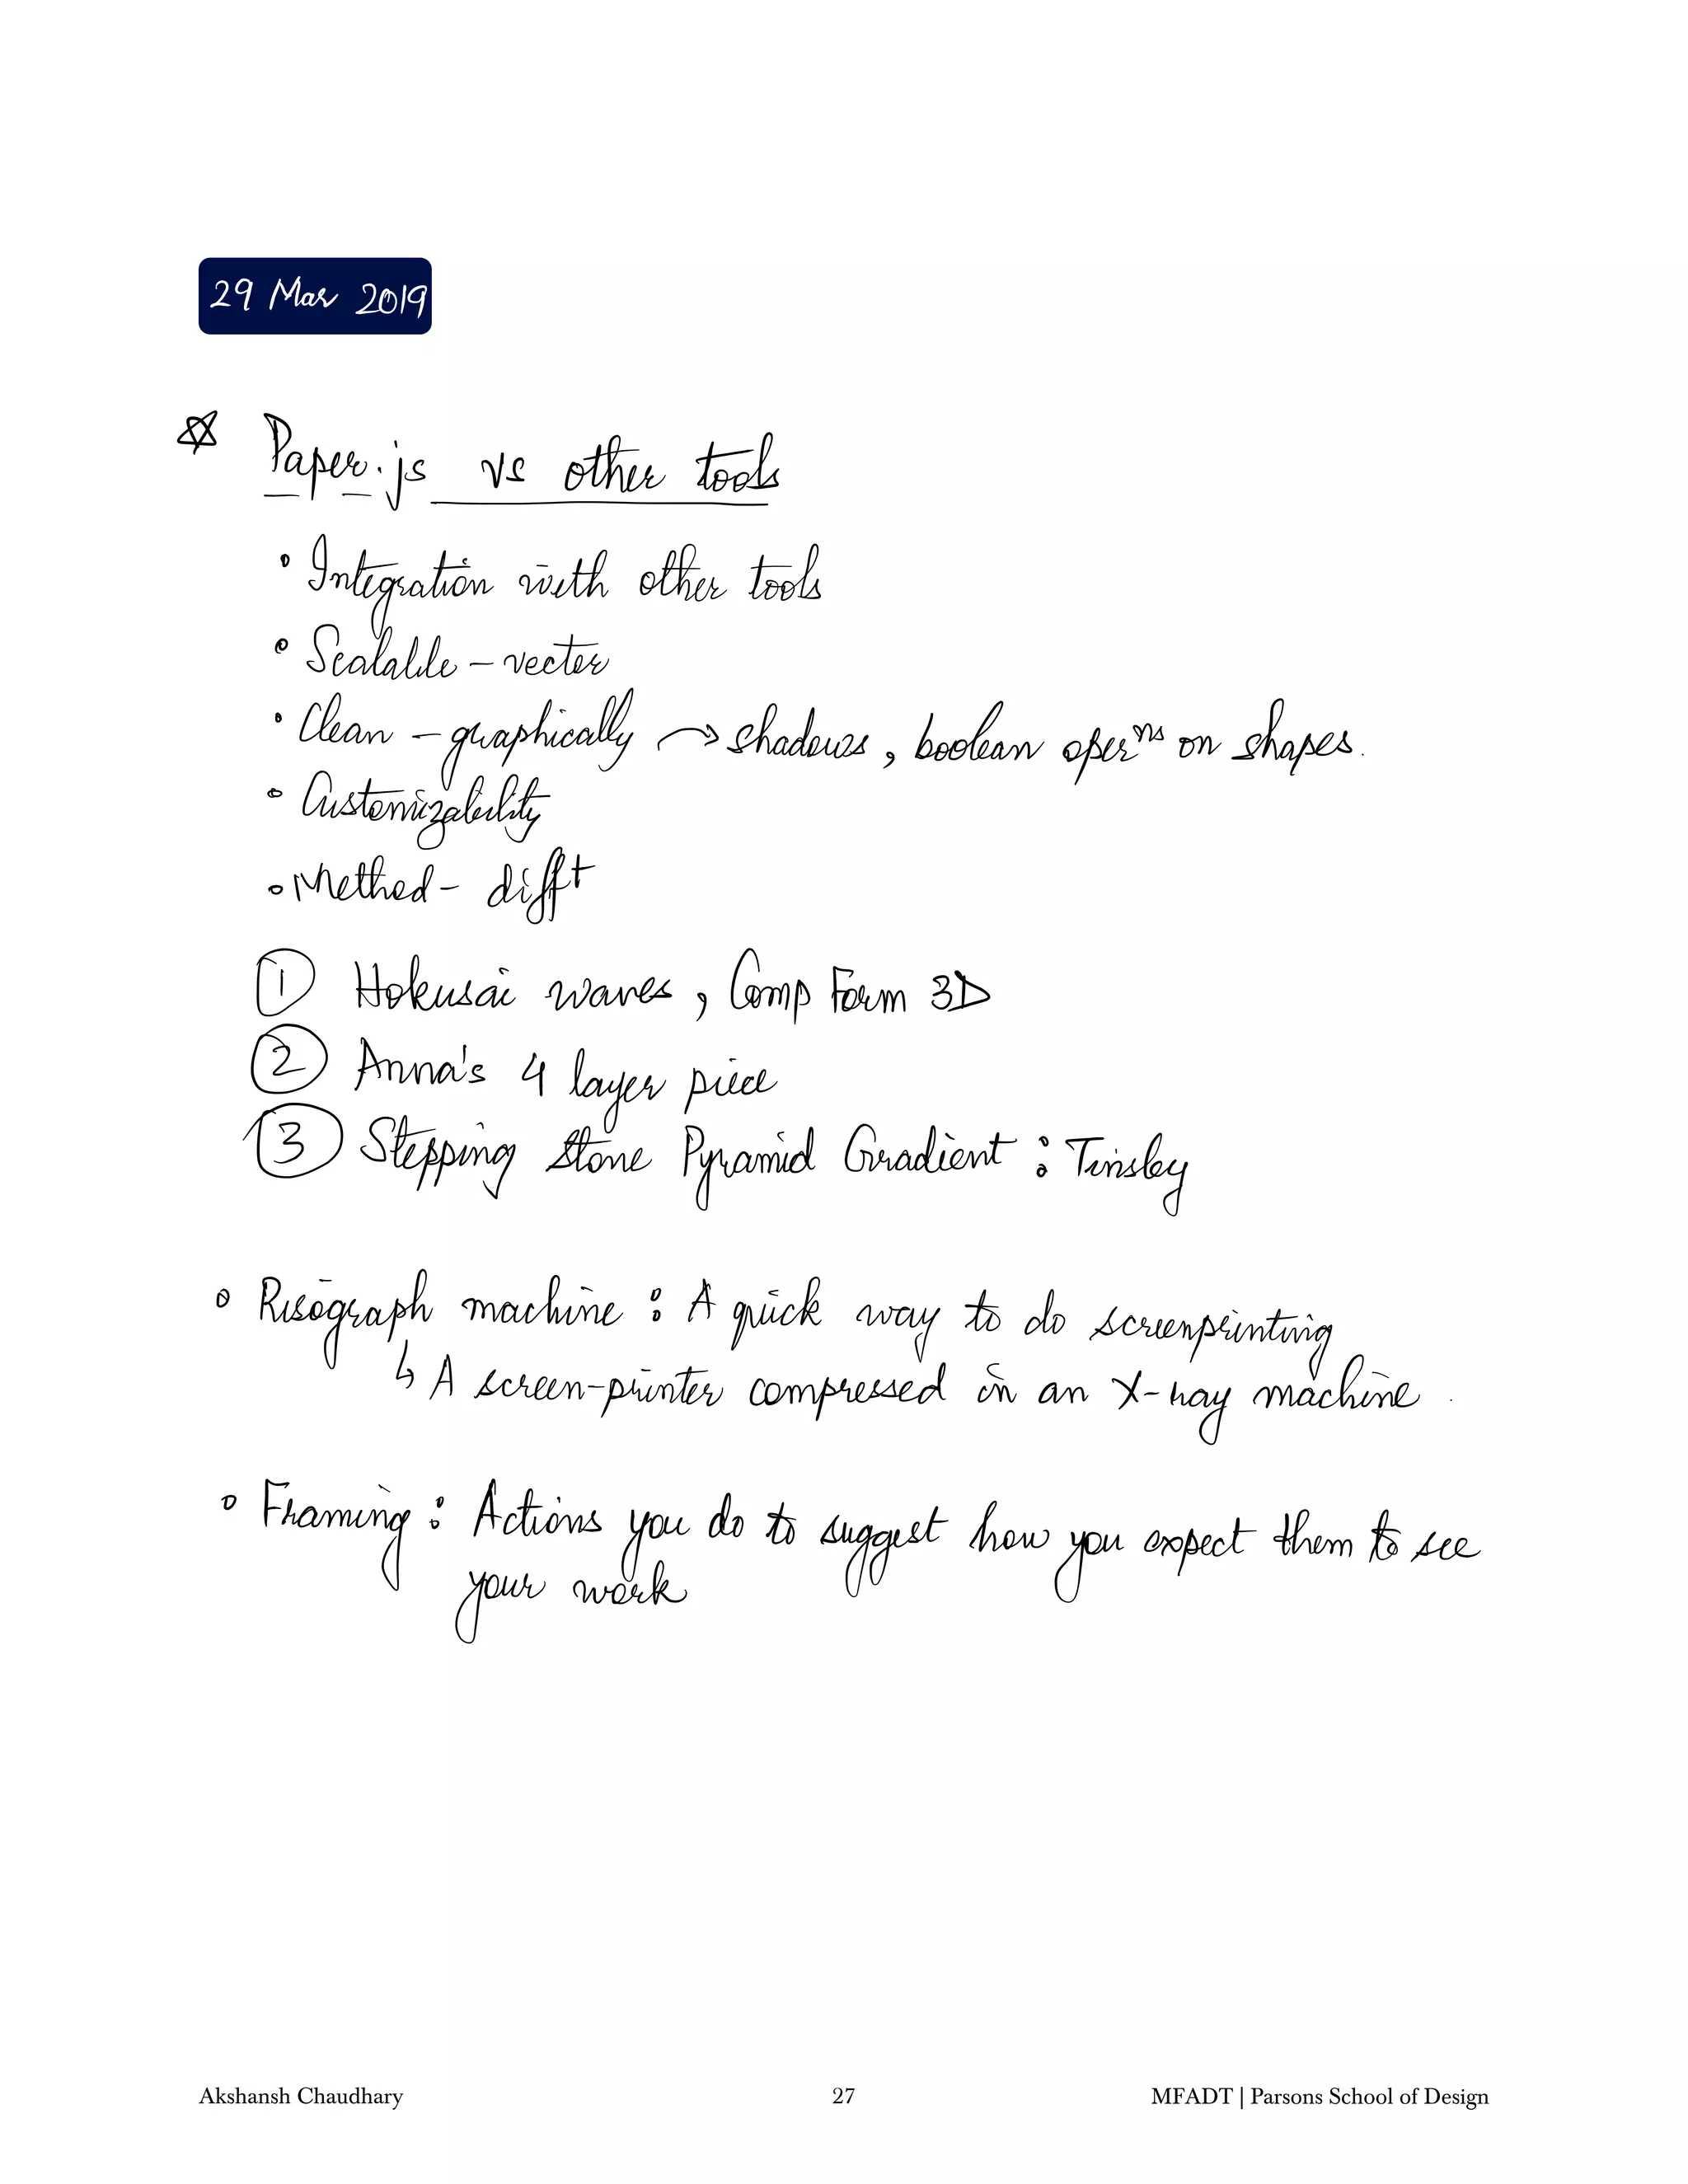 29 Mar 2019
☆ Paper.js vs other tools
• Integration with other tools
• Scalable – vector
• Clean – graphically → shadows, boolean oper^ns on shapes.
• Customizability
• Method – diff^t
① Hokusai waves, Comp Form 3D
② Anna's 4 layer piece
③ Stepping Stone Pyramid Gradient : Tinsley
• Risograph machine : A quick way to do screenprinting
↳ A screen-printer compressed in an X-ray machine.
• Framing : Actions you do to suggest how you expect them to see
your work
Akshansh Chaudhary 27 MFADT | Parsons School of Design